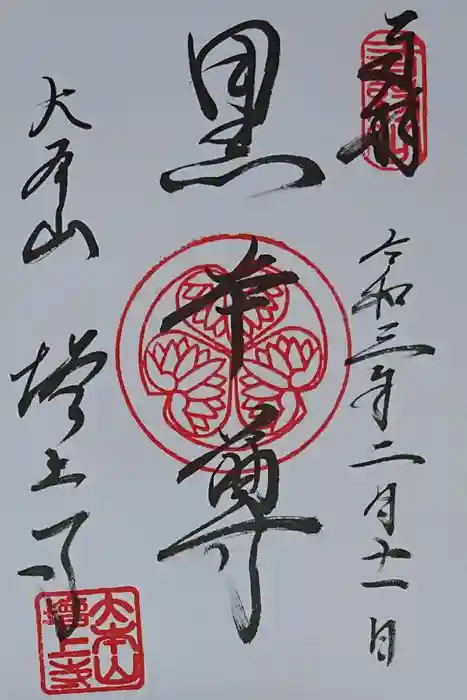 奉拝
令和三年二月十一日
黒本尊
大本山
増上寺
大本山
増上寺